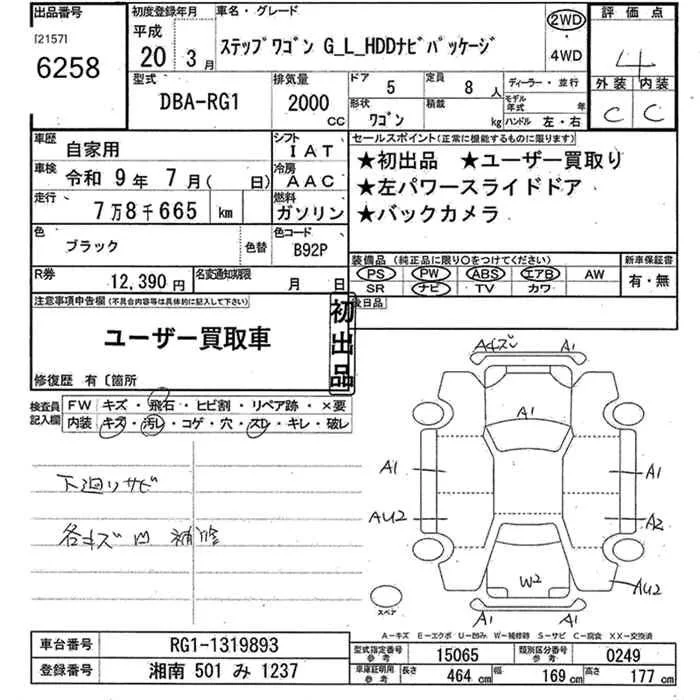 出品番号
[2157]
6258
初度登録年月
平成
20年 3月
車名・グレード
ステップワゴン G_L_HDDナビパッケージ
2WD
4WD
評価点
4
外装 内装
C C
型式
DBA-RG1
排気量
2000 cc
ドア 5
定員 8人
形状 ワゴン
積載 kg
ディーラー・並行
モデル年式 年
ハンドル 左・右
車歴 自家用
シフト IAT
車検 令和 9年 7月( 日)
冷房 AAC
走行 7万8千665 km
燃料 ガソリン
色 ブラック
色替
色コード B92P
R券 12,390円
名変通知期限 月 日
セールスポイント(正常に機能するものに限ります)
★初出品 ★ユーザー買取り
★左パワースライドドア
★バックカメラ
装備品(純正品に限り○をつけてください)
PS PW ABS エアB AW
SR ナビ TV カワ
新車保証書
有・無
後日品
注意事項申告欄(不具合内容等は具体的に記入して下さい)
ユーザー買取車
初出品
修復歴 有〔箇所
検査員記入欄
FW キズ・飛石・ヒビ割・リペア跡・×要
内装 キズ・汚レ・コゲ・穴・スレ・キレ・破レ
下廻りサビ
各キズ凹 補修
Aキズ A1
A1
A1 A1
AU2 A2
W2 AU2
A1 A1
スペア
A-キズ E-エクボ U-凹み W-補修跡 S-サビ C-腐食 XX-交換済
車台番号 RG1-1319893
登録番号 湘南 501 み 1237
型式指定番号参考 15065
類別区分番号参考 0249
車庫証明記載参考 長さ 464 cm 幅 169 cm 高さ 177 cm